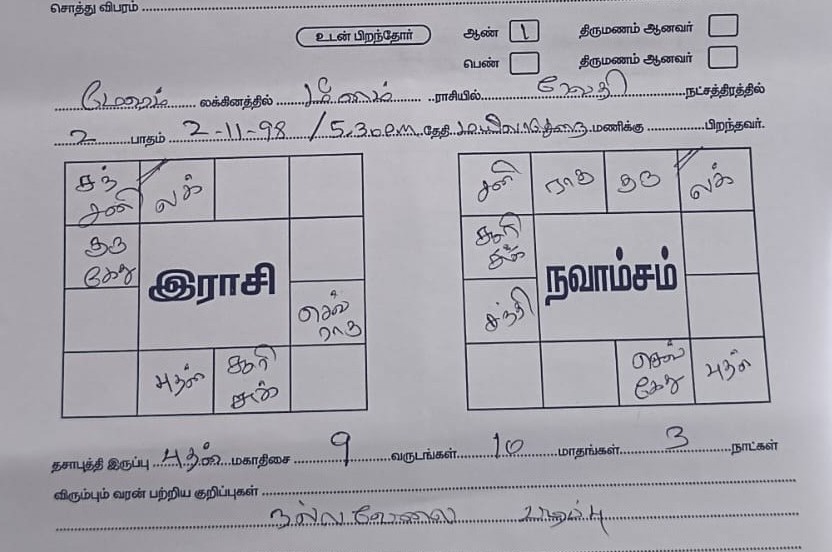 சொத்து விபரம்
உடன் பிறந்தோர் ஆண் 1 திருமணம் ஆனவர்
பெண் திருமணம் ஆனவர்
மேஷம் லக்கினத்தில் மீனம் ராசியில் ரேவதி நட்சத்திரத்தில்
2 பாதம் 2-11-98 / 5.30 P.M தேதி மயிலாடுதுறை மணிக்கு பிறந்தவர்.
சந் சனி லக்
குரு கேது
இராசி
செவ் ராகு
புதன் சூரி சுக்
சனி ராகு குரு லக்
சூரி சுக்
நவாம்சம்
சந்தி
செவ் கேது புதன்
தசாபுத்தி இருப்பு புதன் மகாதிசை 9 வருடங்கள் 10 மாதங்கள் 3 நாட்கள்
விரும்பும் வரன் பற்றிய குறிப்புகள்
நல்ல வேலை படிப்பு